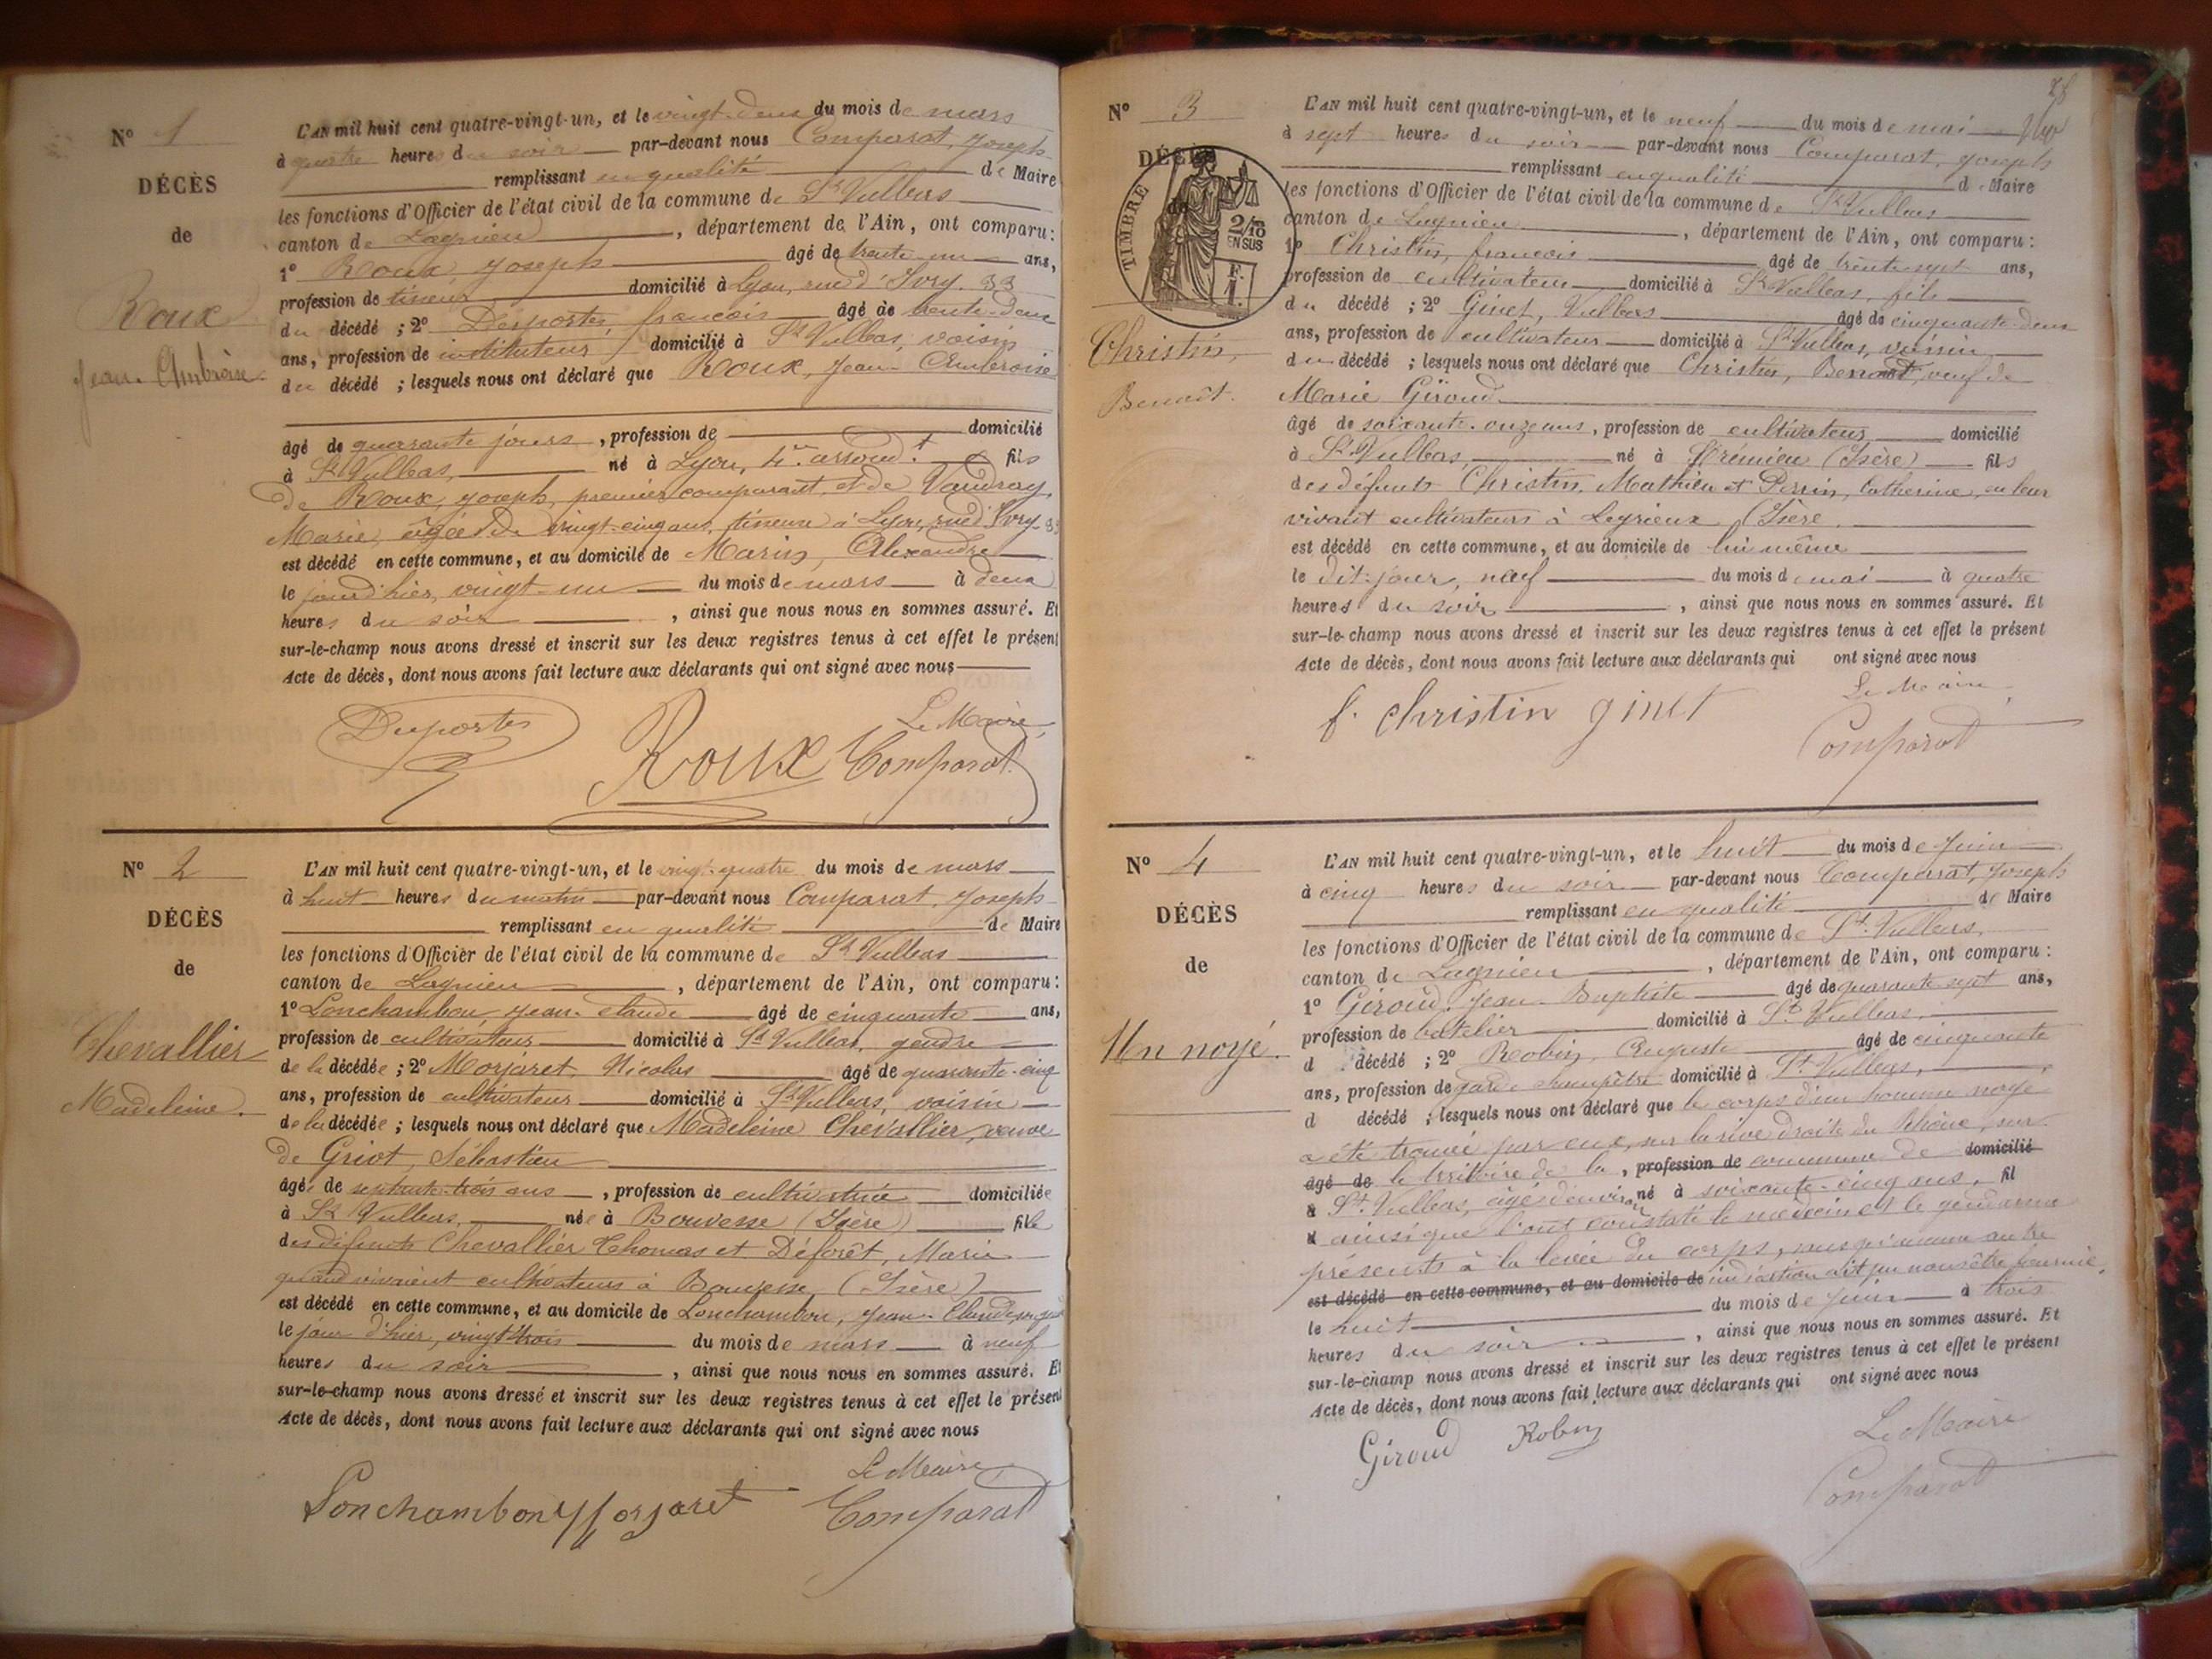 N° 1
DÉCÈS
de
Roux
Jean-Ambroise
L'AN mil huit cent quatre-vingt-un, et le vingt-deux du mois de mars
à quatre heures du soir par-devant nous Comparat, Joseph
remplissant en qualité de Maire
les fonctions d'Officier de l'état civil de la commune de St Vulbas
canton de Lagnieu, département de l'Ain, ont comparu:
1° Roux, Joseph âgé de trente-un ans,
profession de tisseur domicilié à Lyon, rue d'Ivry. 33
du décédé ; 2° Desportes, françois âgé de trente-deux
ans, profession de instituteur domicilié à St Vulbas, voisin
du décédé ; lesquels nous ont déclaré que Roux, Jean-Ambroise
âgé de quarante jours, profession de domicilié
à St Vulbas, né à Lyon, 4e arrond.t fils
de Roux, Joseph, premier comparant, et de Vaudray,
Marie, âgée de vingt-cinq ans, tisseuse à Lyon, rue d'Ivry. 33
est décédé en cette commune, et au domicile de Marin, Alexandre
le jour d'hier, vingt-un du mois de mars à deux
heures du soir, ainsi que nous nous en sommes assuré. Et
sur-le-champ nous avons dressé et inscrit sur les deux registres tenus à cet effet le présent
Acte de décès, dont nous avons fait lecture aux déclarants qui ont signé avec nous
Le Maire,
Desportes
Roux Comparat
N° 2
DÉCÈS
de
Chevallier
Madeleine.
L'AN mil huit cent quatre-vingt-un, et le vingt-quatre du mois de mars
à huit heures du matin par-devant nous Comparat, Joseph
remplissant en qualité de Maire
les fonctions d'Officier de l'état civil de la commune de St Vulbas
canton de Lagnieu, département de l'Ain, ont comparu:
1° Lonchambon, Jean-Claude âgé de cinquante ans,
profession de cultivateur domicilié à St Vulbas, gendre
de la décédée ; 2° Morjaret, Nicolas âgé de quarante-cinq
ans, profession de cultivateur domicilié à St Vulbas, voisin
de la décédée ; lesquels nous ont déclaré que Madeleine Chevallier, veuve
de Griot, Sébastien
âgée de septante-trois ans, profession de cultivatrice domiciliée
à St Vulbas, née à Bouvesse (Isère) fille
des défunts Chevallier Thomas et Déforêt, Marie
quand vivaient cultivateurs à Bouvesse (Isère)
est décédé en cette commune, et au domicile de Lonchambon, Jean-Claude
le jour d'hier, vingt-trois du mois de mars à neuf
heures du soir, ainsi que nous nous en sommes assuré. Et
sur-le-champ nous avons dressé et inscrit sur les deux registres tenus à cet effet le présent
Acte de décès, dont nous avons fait lecture aux déclarants qui ont signé avec nous
Le Maire
Lonchambon Morjaret Comparat
28
N° 3
DÉCÈS
de
TIMBRE
2/10
EN SUS
F.
1.
Christin,
Benoît.
L'AN mil huit cent quatre-vingt-un, et le neuf du mois de mai
à sept heures du soir par-devant nous Comparat, Joseph
remplissant en qualité de Maire
les fonctions d'Officier de l'état civil de la commune de St Vulbas
canton de Lagnieu, département de l'Ain, ont comparu:
1° Christin, françois âgé de trente-sept ans,
profession de cultivateur domicilié à St Vulbas, fils
du décédé ; 2° Ginet, Vulbas âgé de cinquante-deux
ans, profession de cultivateur domicilié à St Vulbas, voisin
du décédé ; lesquels nous ont déclaré que Christin, Benoît, veuf de
Marie Giroud
âgé de soixante-onze ans, profession de cultivateur domicilié
à St Vulbas, né à Crémieu (Isère) fils
des défunts Christin, Mathieu et Perrin, Catherine, en leur
vivant cultivateurs à Leyrieux (Isère
est décédé en cette commune, et au domicile de lui même
le dit-jour, neuf du mois de mai à quatre
heures du soir, ainsi que nous nous en sommes assuré. Et
sur-le-champ nous avons dressé et inscrit sur les deux registres tenus à cet effet le présent
Acte de décès, dont nous avons fait lecture aux déclarants qui ont signé avec nous
Le Maire,
f. christin ginet
Comparat
N° 4
DÉCÈS
de
Un noyé.
L'AN mil huit cent quatre-vingt-un, et le huit du mois de Juin
à cinq heures du soir par-devant nous Comparat, Joseph
remplissant en qualité de Maire
les fonctions d'Officier de l'état civil de la commune de St. Vulbas,
canton de Lagnieu, département de l'Ain, ont comparu:
1° Giroud, Jean-Baptiste âgé de quarante-sept ans,
profession de batelier domicilié à St. Vulbas,
d décédé ; 2° Robin, Auguste âgé de cinquante
ans, profession de garde champêtre domicilié à St. Vulbas,
d décédé ; lesquels nous ont déclaré que le corps d'un homme noyé
a été trouvé par eux, sur la rive droite du Rhône, sur
âgé de le territoire de la, profession de commune de domicilié
à St. Vulbas, âgé d'environ né à soixante-cinq ans, fil
d ainsi que l'ont constaté le médecin et le gendarme
présents à la levée du corps, sans qu'aucun autre
est décédé en cette commune, et au domicile de indication ait pu nous être fournie,
le huit du mois de Juin à trois
heures du soir, ainsi que nous nous en sommes assuré. Et
sur-le-champ nous avons dressé et inscrit sur les deux registres tenus à cet effet le présent
Acte de décès, dont nous avons fait lecture aux déclarants qui ont signé avec nous
Giroud Robin
Le Maire
Comparat